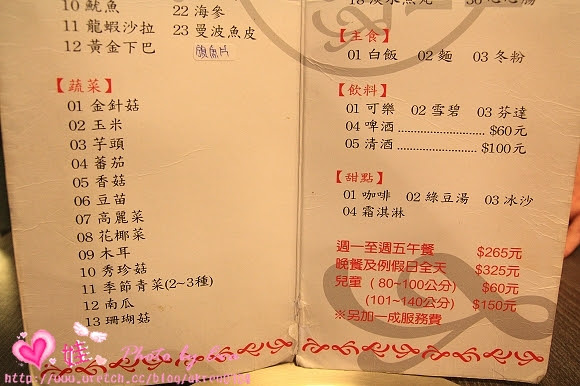 10 魷魚
11 龍蝦沙拉
12 黃金下巴
22 海參
23 曼波魚皮
【蔬菜】
01 金針菇
02 玉米
03 芋頭
04 蕃茄
05 香菇
06 豆苗
07 高麗菜
08 花椰菜
09 木耳
10 秀珍菇
11 季節青菜(2~3種)
12 南瓜
13 珊瑚菇
【主食】
01 白飯 02 麵 03 冬粉
【飲料】
01 可樂 02 雪碧 03 芬達
04 啤酒 ........................ $60元
05 清酒 ........................ $100元
【甜點】
01 咖啡 02 綠豆湯 03 冰沙
04 霜淇淋
週一至週五午餐 $265元
晚餐及例假日全天 $325元
兒童 ( 80~100公分) $60元
(101~140公分) $150元
※另加一成服務費
Photo by